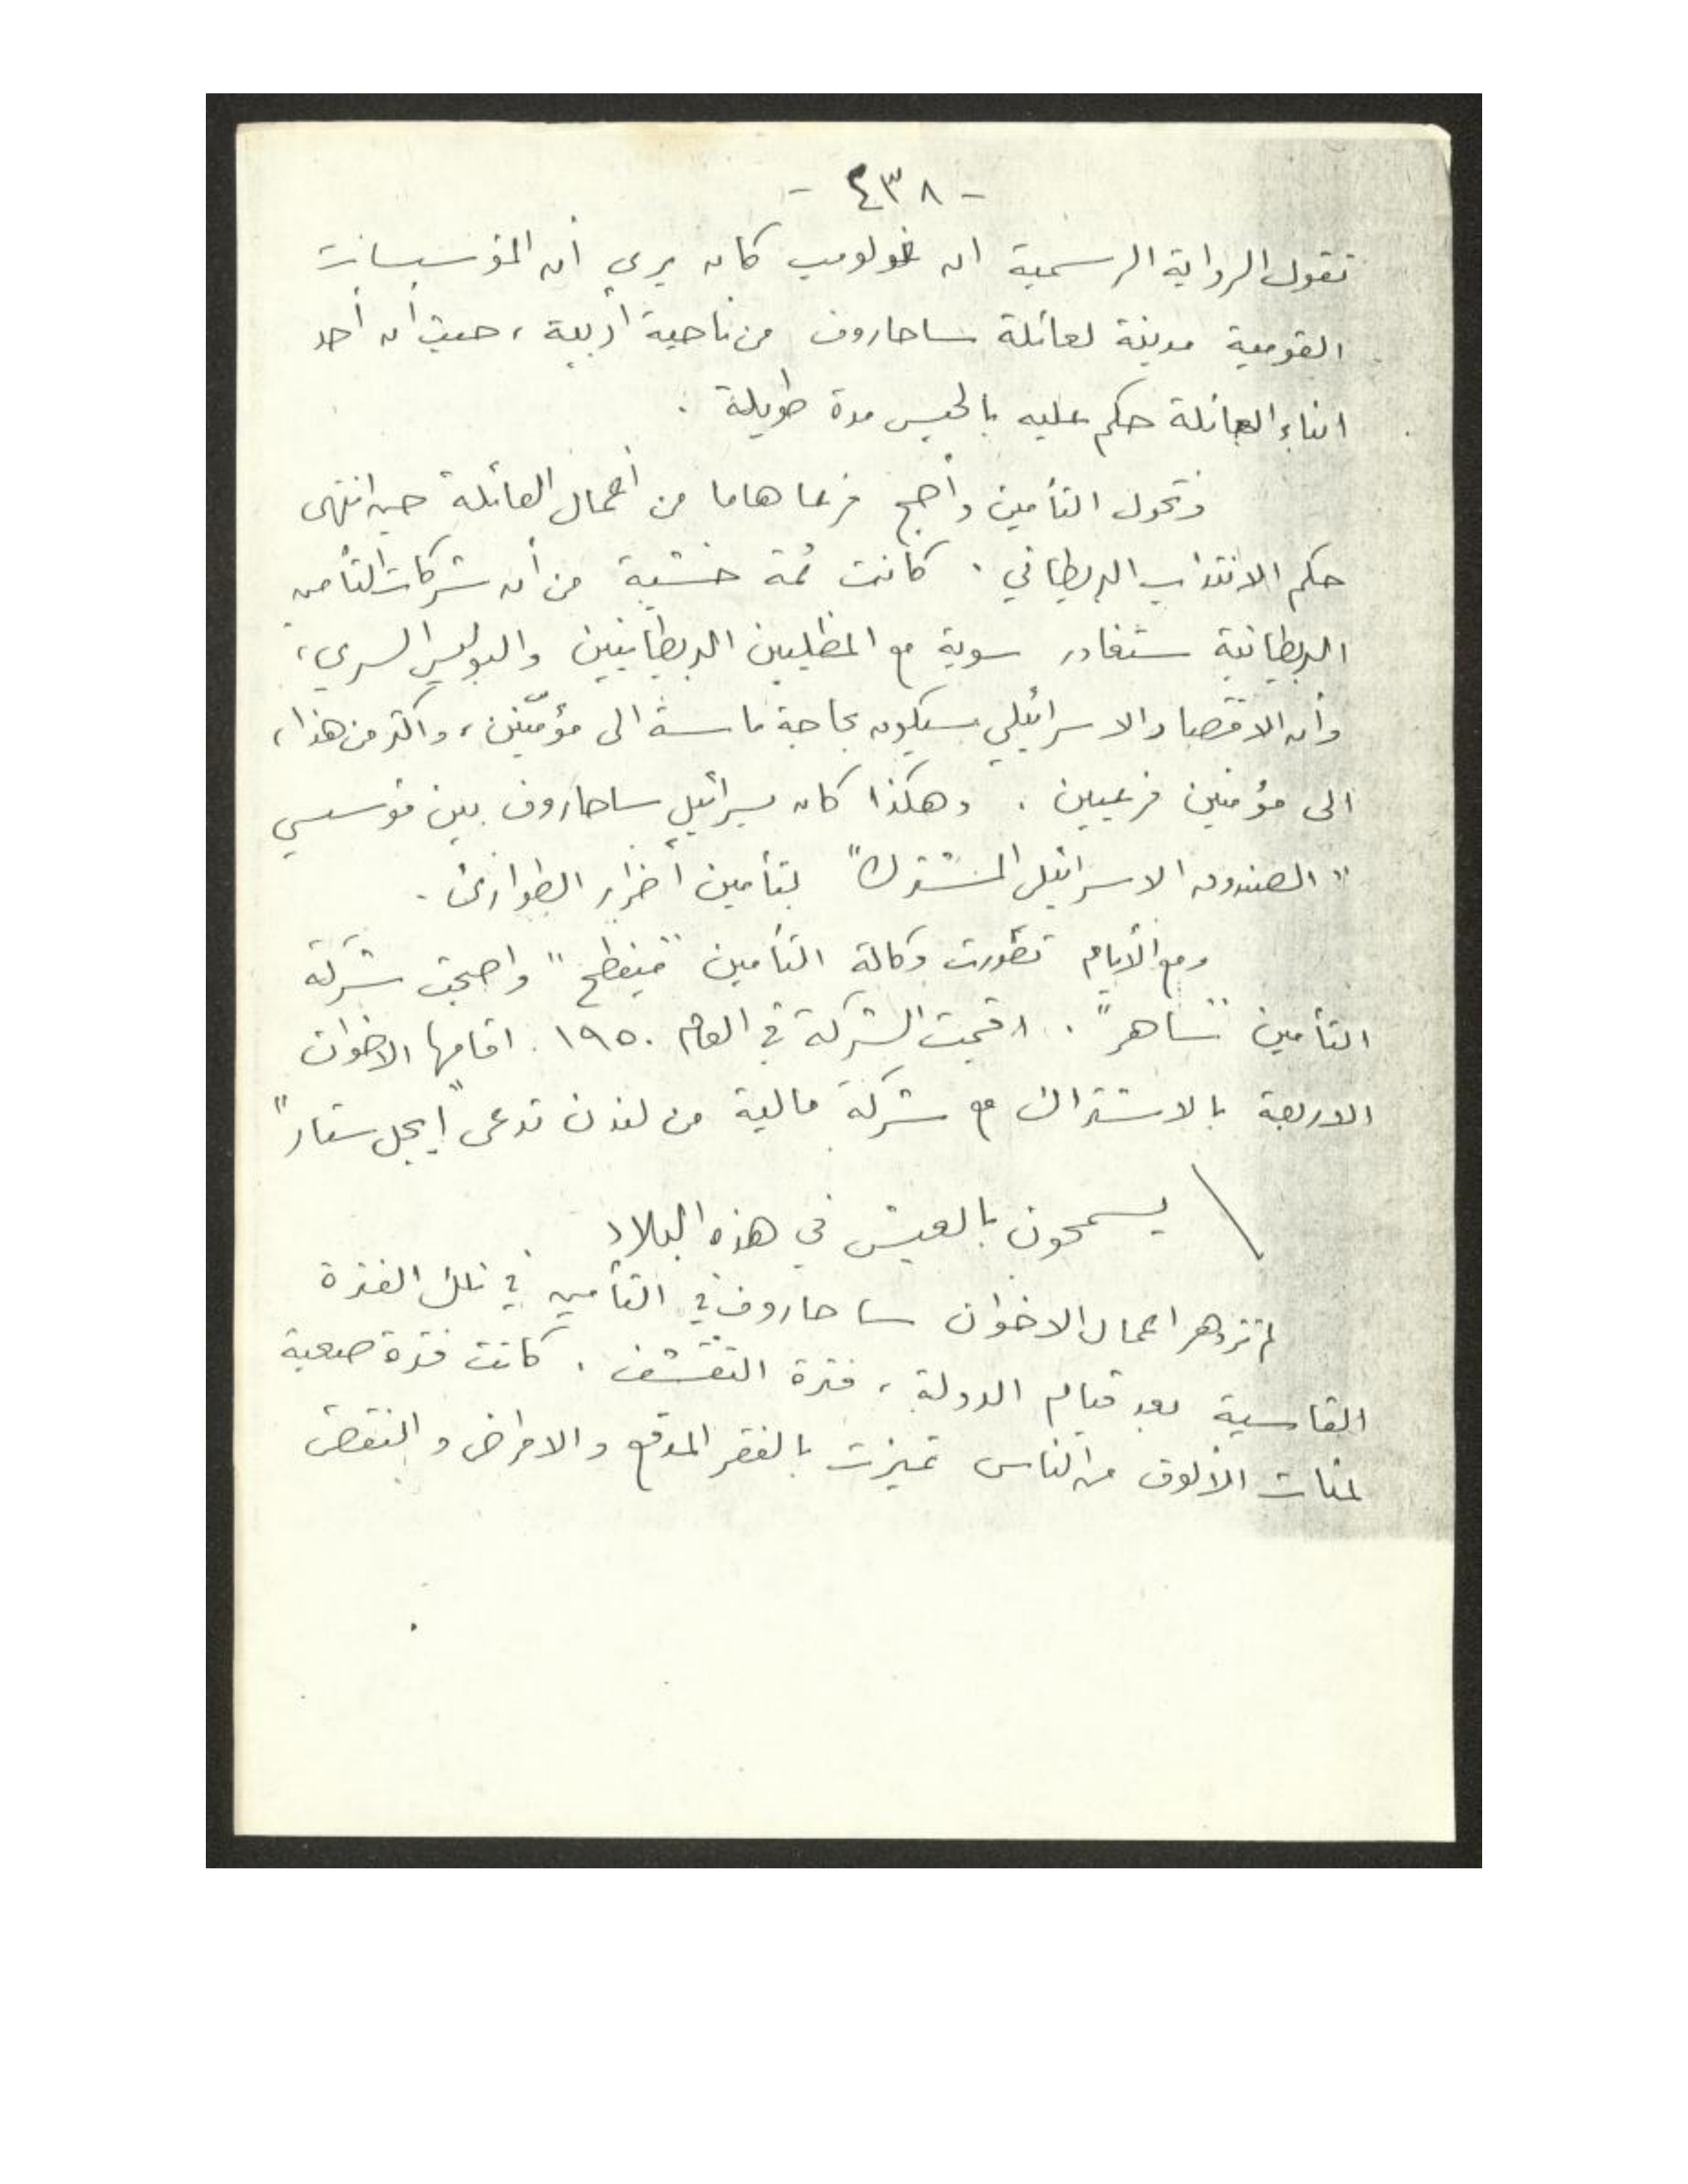 - ٤٣٨ -
تقول الرواية الرسمية ان غولومب كان يرى أن المؤسسات
القومية مدينة لعائلة ساحاروف من ناحية أدبية ، حيث أن أحد
ابناء العائلة حكم عليه بالحبس مدة طويلة .
وتحول التأمين وأصبح فرعا هاما من أعمال العائلة حين انتهى
حكم الانتداب البريطاني . كانت ثمة خشية من أن شركات التأمين
البريطانية ستغادر سوية مع المظليين البريطانيين والبوليس السري ،
وأن الاقتصاد الاسرائيلي سيكون بحاجة ماسة الى مؤمّنين ، واكثر من هذا ،
الى مؤمنين فرعيين . وهكذا كان يسرائيل ساحاروف بين مؤسسي
" الصندوق الاسرائيلي المشترك " لتأمين أضرار الطوارئ .
ومع الأيام تطورت وكالة التأمين " مينطح " واصبحت شركة
التأمين " ساهر " . اقيمت الشركة في العام ١٩٥٠ . اقامها الاخوان
الاربعة بالاشتراك مع شركة مالية من لندن تدعى " إيجل ستار "
يسمحون بالعيش في هذه البلاد
لم تزدهر اعمال الاخوان ساحاروف في التأمين في تلك الفترة
القاسية بعد قيام الدولة ، فترة التقشف . كانت فترة صعبة
لمئات الألوف من الناس تميزت بالفقر المدقع والامراض والنقص